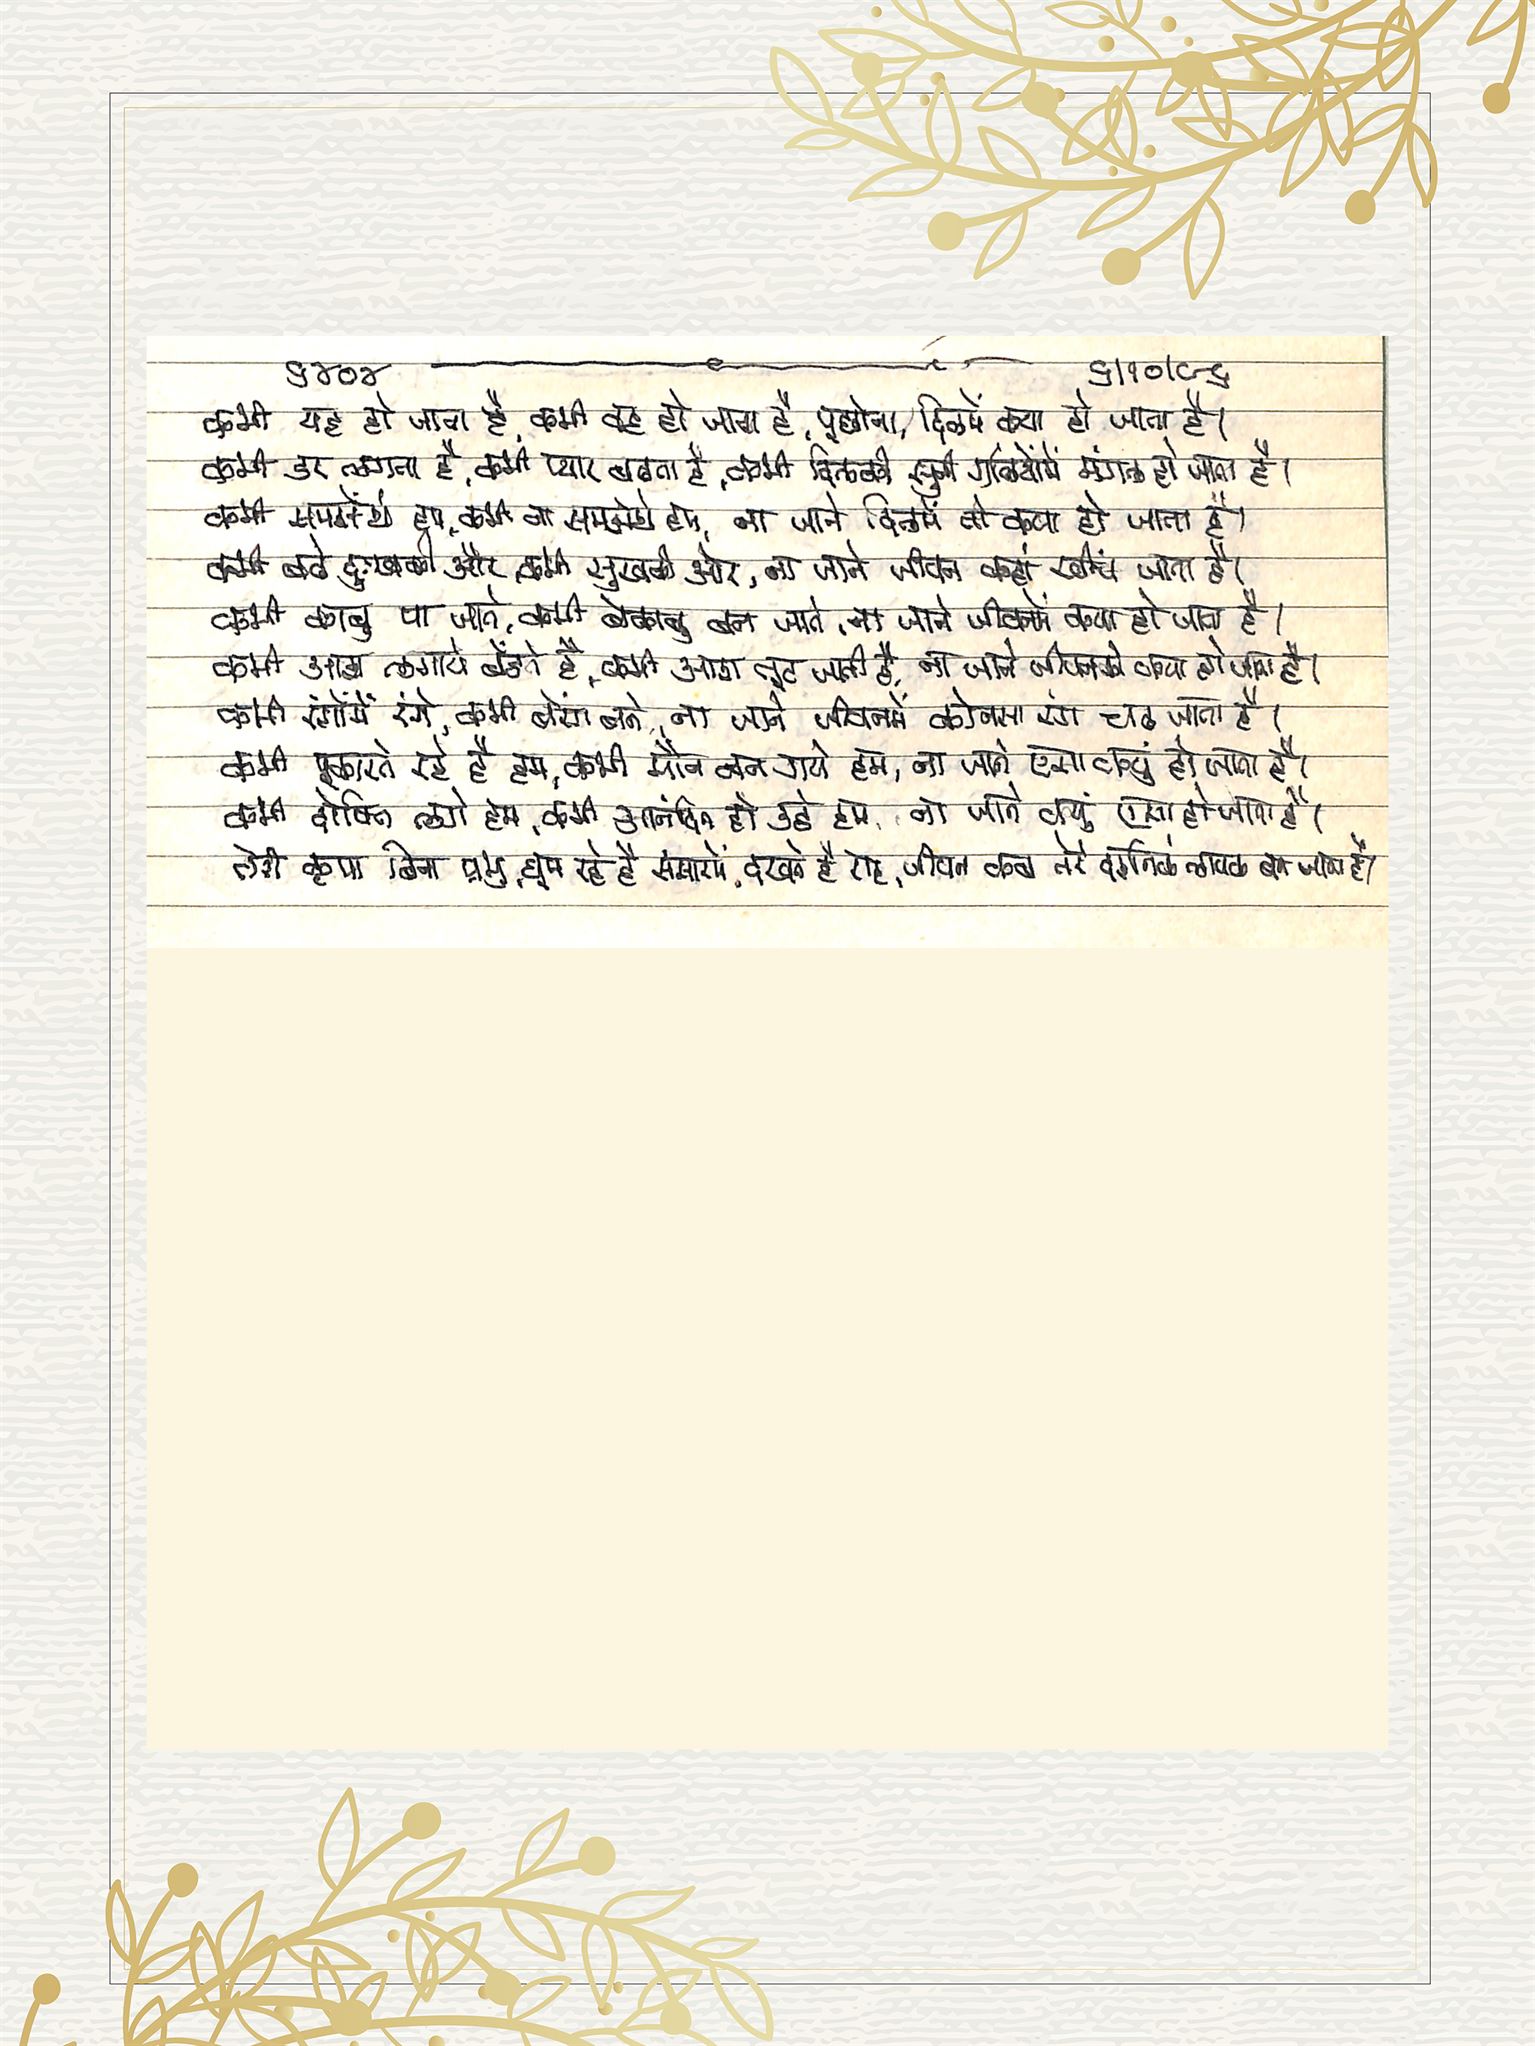 ५४०४ ५/१०/८९
कभी यह हो जाता है, कभी वह हो जाता है, पूछोना, दिलमें क्या हो जाता है।
कभी डर लगता है, कभी प्यार बढता है, कभी दिलकी सुनी गलियोंमें मंगल हो जाता है।
कभी समझेंगे हम, कभी ना समझेंगे हम, ना जाने दिलमें तो क्या हो जाता है।
कभी बढे दुःखकी और, कभी सुखकी और, ना जाने जीवन कहां खींच जाता है।
कभी काबु पा जाते, कभी बेकाबु बन जाते, ना जाने जीवनमें क्या हो जाता है।
कभी आश लगाये बैठते है, कभी आश तूट जाती है, ना जाने जीवनको क्या हो जाता है।
कभी रंगोंमें रंगे, कभी बेरंग बने, ना जाने जीवनमें कोनसा रंग चढ जाता है।
कभी पूकारते रहे है हम, कभी मौन बन गये हम, ना जाने एसा क्युं हो जाता है।
कभी लगे हम, कभी आनंदित हो उठे हम, ना जाने क्युं एसा हो जाता है।
तेरी कृपा बिना प्रभु, घूम रहे है संसारमें, देखते है राह, जीवन कब तेरे लायक बन जाता है।